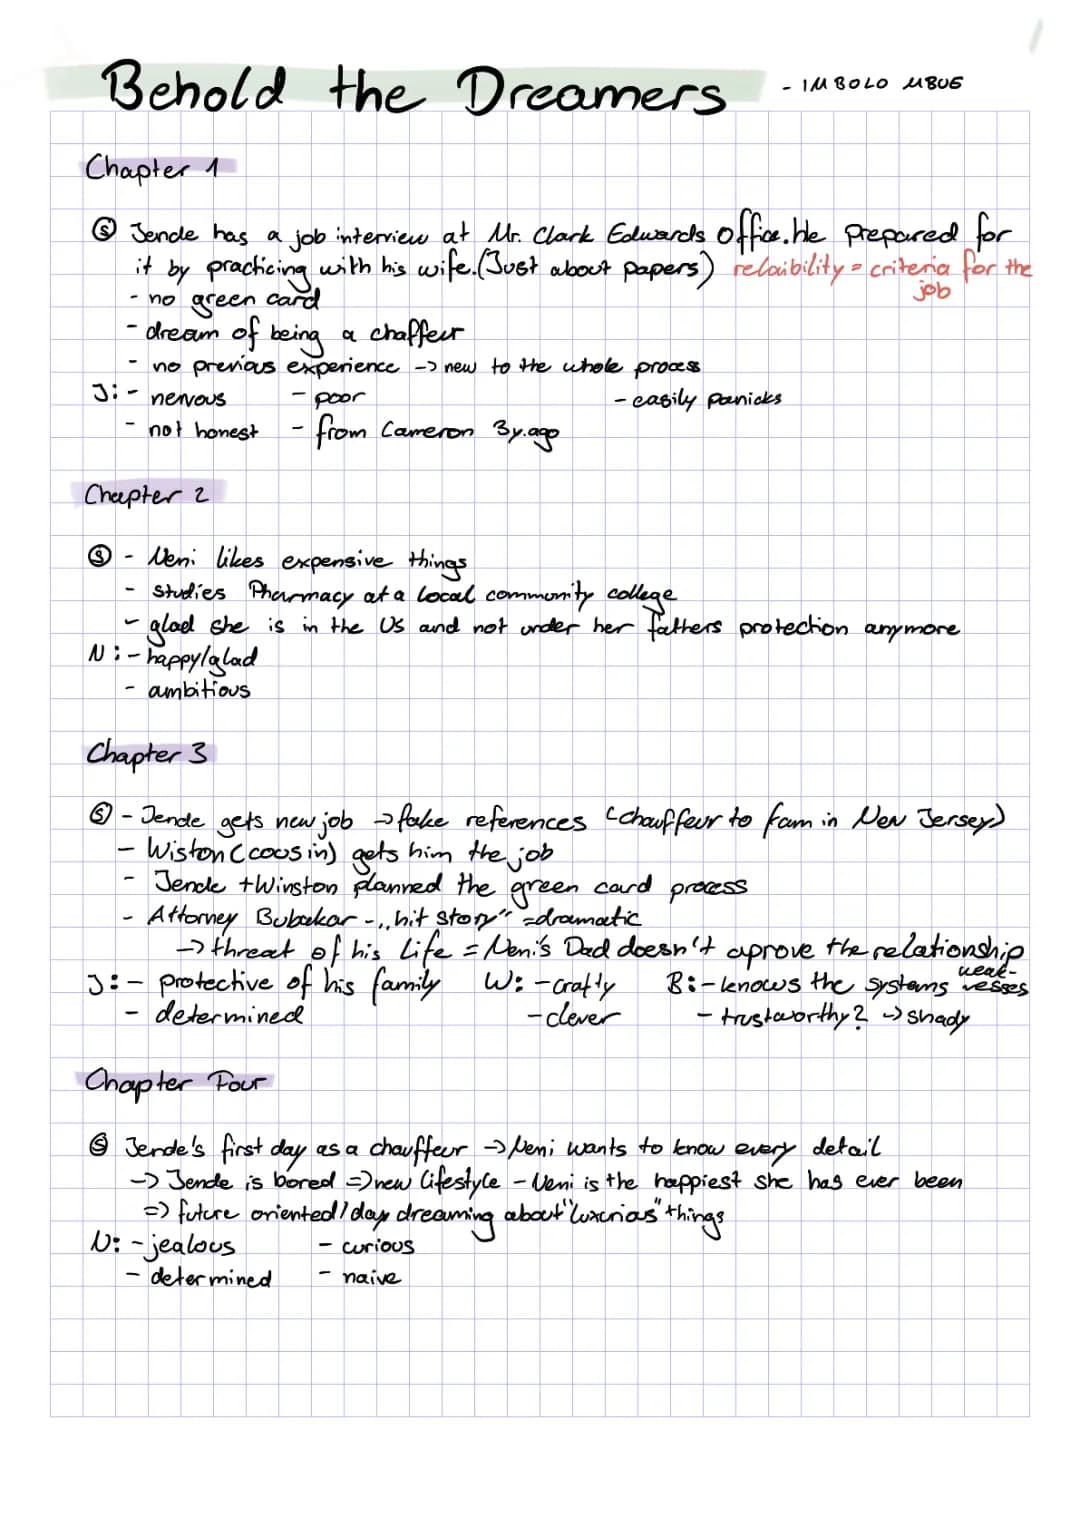 Behold the Dreamers - IMBOLO MBUE
Chapter 1
Ⓢ Jende has a job interview at Mr. Clark Edwards Office. He prepared for
it by practicing with his wife. (Just about papers) relaibility = criteria for the
job
- no green card
- dream of being a chaffeur
- no previous experience -> new to the whole process
J: - nervous - poor - easily panicks
- not honest - from Cameron 3y. ago
Chapter 2
Ⓢ - Neni likes expensive things
- studies Pharmacy at a local community college
- glad she is in the US and not under her fathers protection anymore
N: - happy/glad
- ambitious
Chapter 3
Ⓢ - Jende gets new job -> fake references (chauffeur to fam in New Jersey)
- Wiston (cousin) gets him the job
- Jende + Winston planned the green card process
- Attorney Bubakar - „hit story" = dramatic
-> threat of his life = Neni's Dad doesn't aprove the relationship
J: - protective of his family W: - crafty B: - knows the systems weak-
nesses
- determined - clever - trustworthy? -> shady
Chapter Four
Ⓢ Jende's first day as a chauffeur -> Neni wants to know every detail
-> Jende is bored => new lifestyle - Neni is the happiest she has ever been
=> future oriented / day dreaming about "luxcrias" things
N: - jealous - curious
- determined - naive